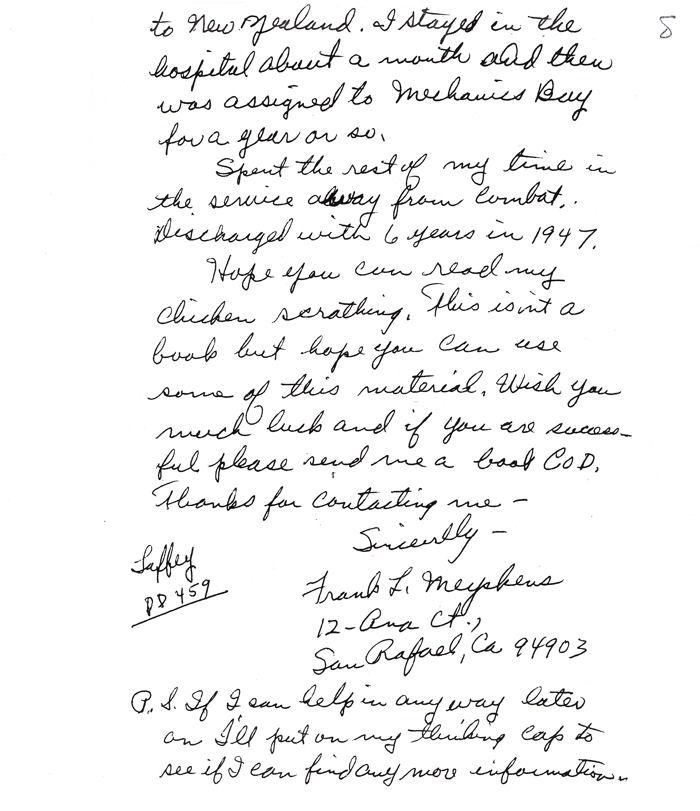 8
to New Zealand. I stayed in the
hospital about a month and then
was assigned to Mechanics Bay
for a year or so.
Spent the rest of my time in
the service away from combat.
Discharged with 6 years in 1947.
Hope you can read my
chicken scrathing. This isint a
book but hope you can use
some of this material. Wish you
much luck and if you are success-
ful please send me a book COD.
Thanks for contacting me -
Sincerelly -
Laffey
DD 459
Frank L. Meyskens
12-Ana Ct.,
San Rafael, Ca 94903
P.S. If I can help in any way later
on I'll put on my thinking cap to
see if I can find any more information.